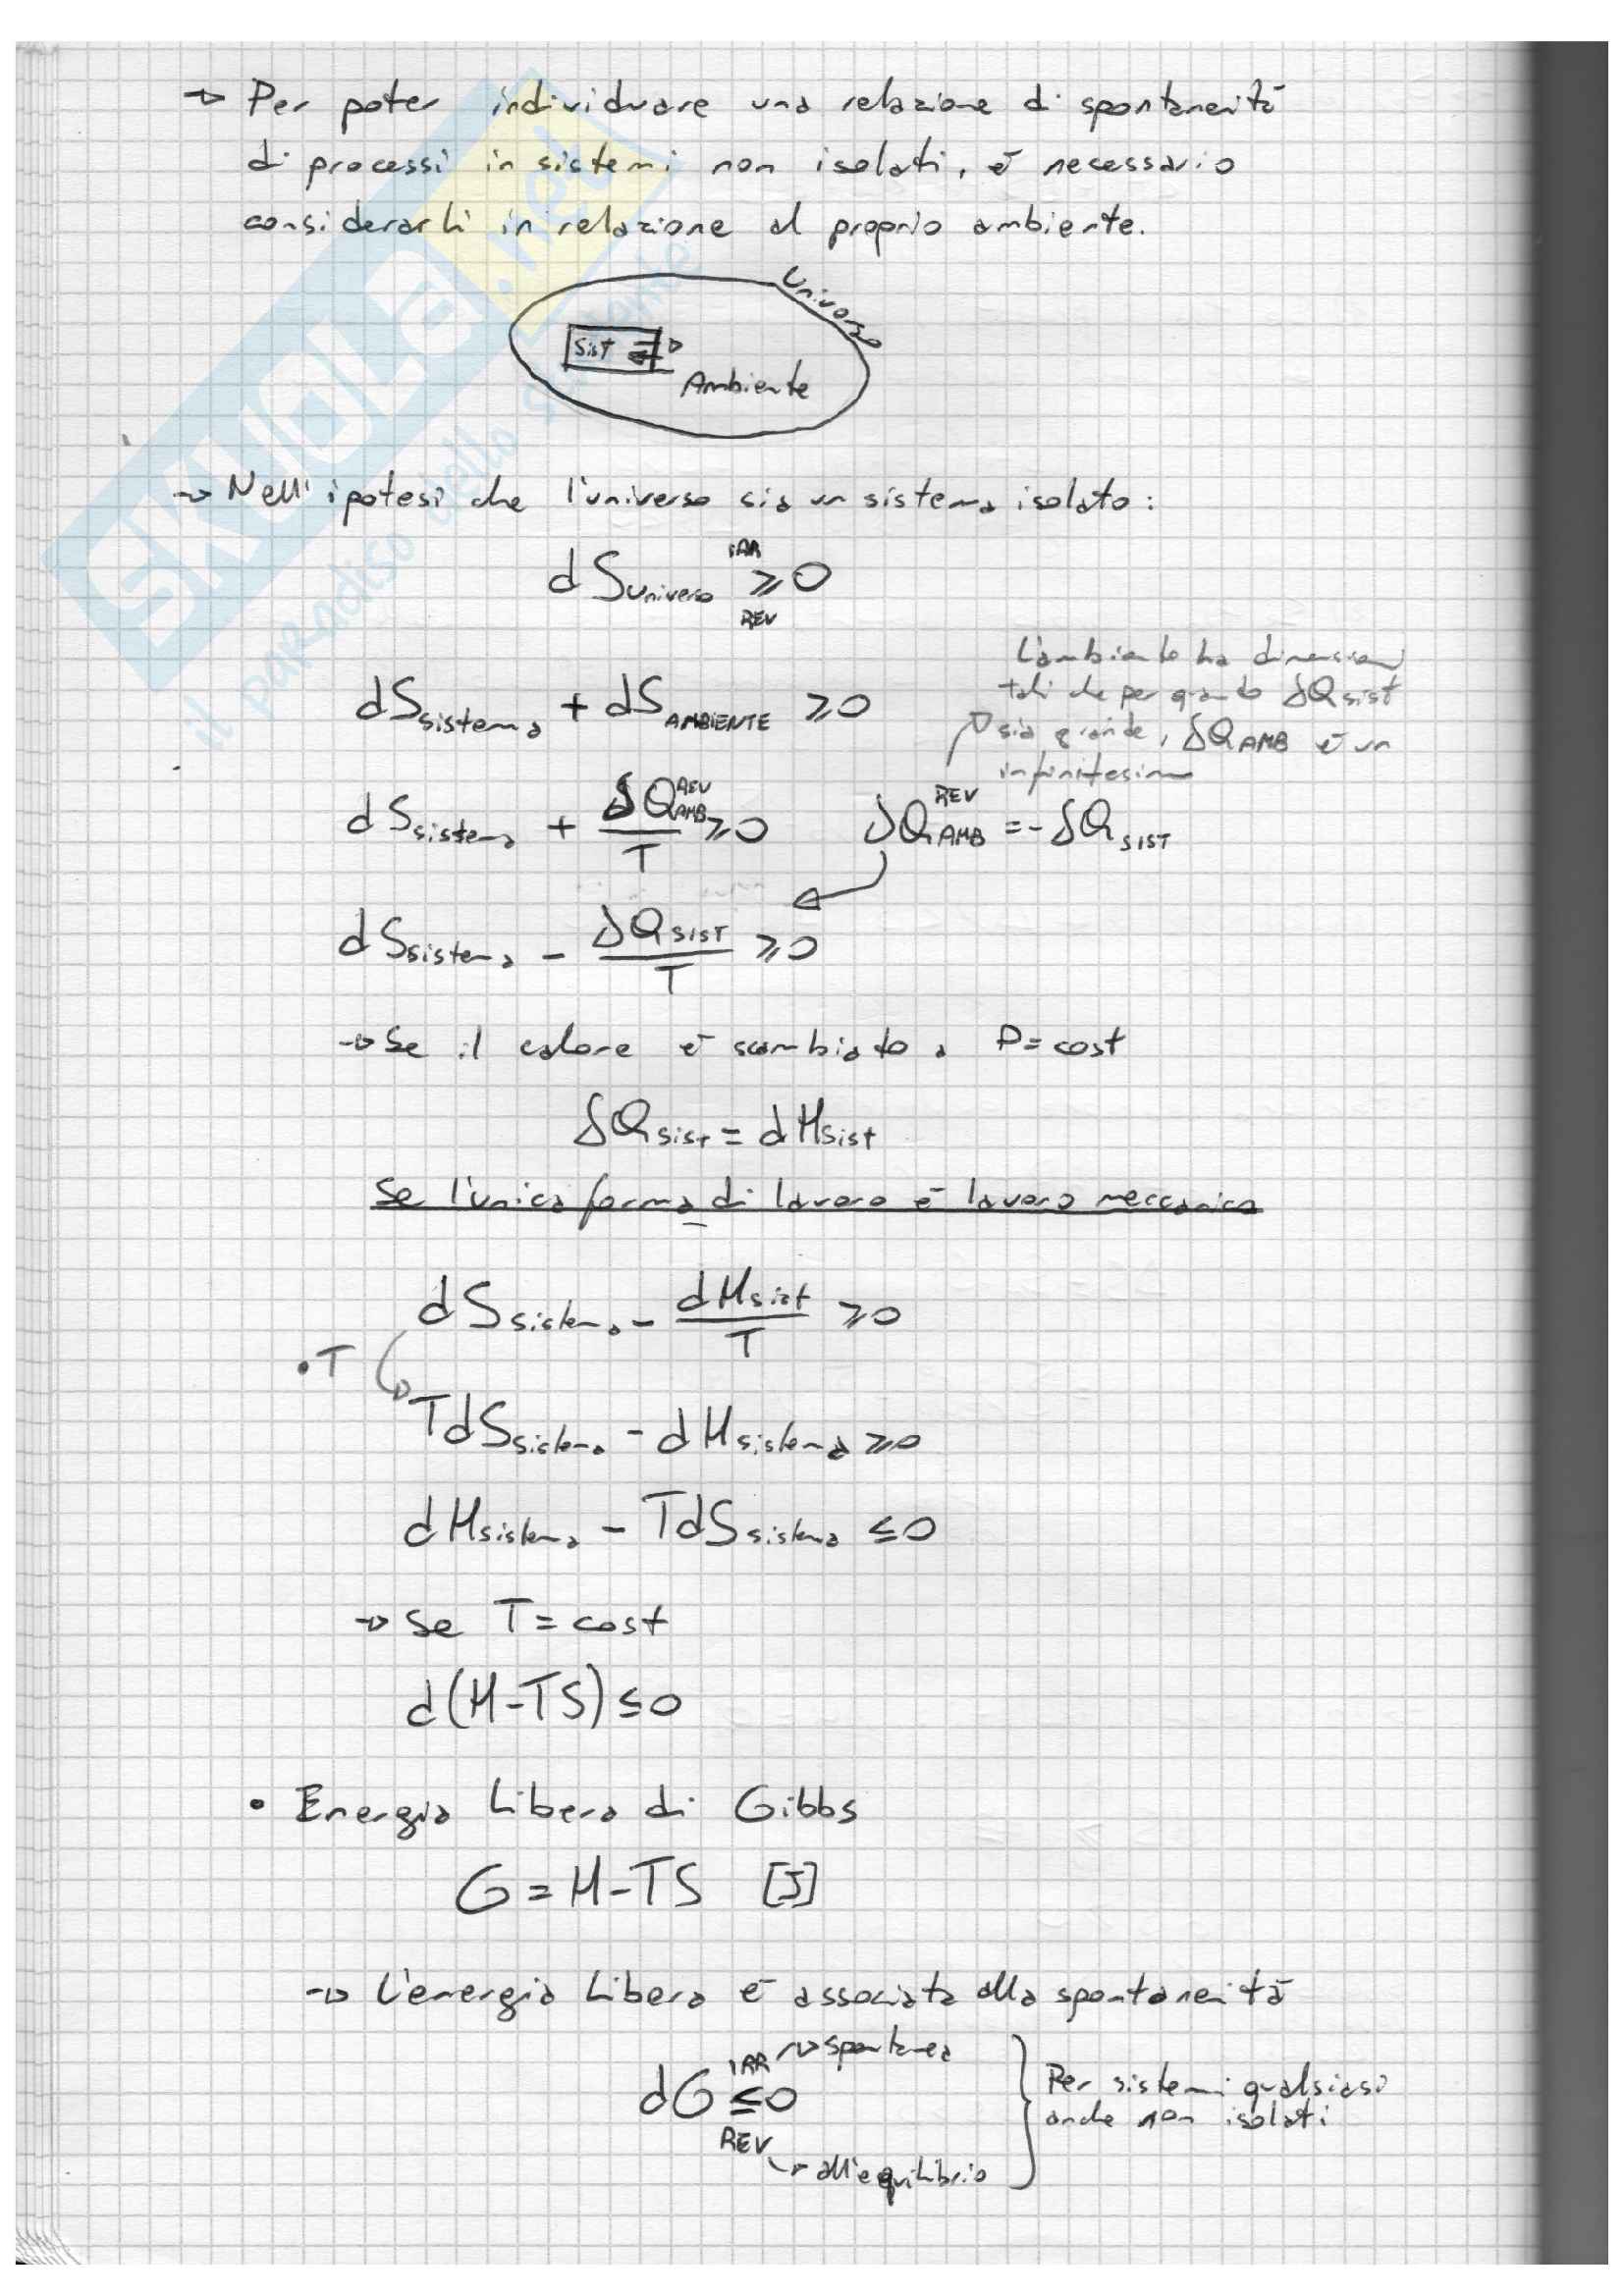 → Per poter individuare una relazione di spontaneità
di processi in sistemi non isolati, è necessario
considerarli in relazione al proprio ambiente.
Universo
Sist
Ambiente
→ Nell'ipotesi che l'universo sia un sistema isolato:
IRR
dSuniverso ≥ 0
REV
L'ambiente ha dimensioni
tali che per quanto δQsist
sia grande, δQAMB è un
infinitesimo
dSsistema + dSAMBIENTE ≥ 0
dSsistema + δQAMB^REV / T ≥ 0    δQAMB^REV = - δQSIST
dSsistema - δQSIST / T ≥ 0
→ Se il calore è scambiato a P = cost
δQsist = dHsist
Se l'unica forma di lavoro è lavoro meccanico
dSsistema - dHsist / T ≥ 0
• T
TdSsistema - dHsistema ≥ 0
dHsistema - TdSsistema ≤ 0
→ Se T = cost
d(H-TS) ≤ 0
• Energia Libera di Gibbs
G = H-TS [J]
→ L'energia Libera è associata alla spontaneità
IRR → spontanea
dG ≤ 0
REV → all'equilibrio
Per sistemi qualsiasi
anche non isolati
SKUOLA.net
il paradiso dello studente